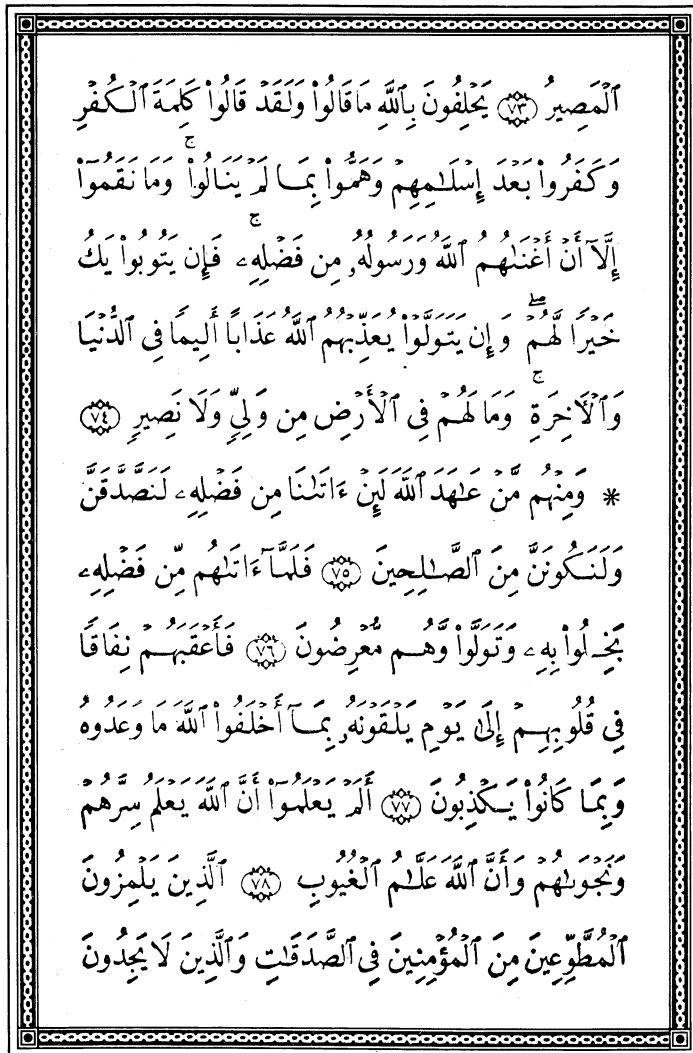 ٱلْمَصِيرُ ﴿٧٣﴾ يَحْلِفُونَ بِٱللَّهِ مَا قَالُوا۟ وَلَقَدْ قَالُوا۟ كَلِمَةَ ٱلْكُفْرِ
وَكَفَرُوا۟ بَعْدَ إِسْلَـٰمِهِمْ وَهَمُّوا۟ بِمَا لَمْ يَنَالُوا۟ ۚ وَمَا نَقَمُوٓا۟
إِلَّآ أَنْ أَغْنَىٰهُمُ ٱللَّهُ وَرَسُولُهُۥ مِن فَضْلِهِۦ ۚ فَإِن يَتُوبُوا۟ يَكُ
خَيْرًا لَّهُمْ ۖ وَإِن يَتَوَلَّوْا۟ يُعَذِّبْهُمُ ٱللَّهُ عَذَابًا أَلِيمًا فِى ٱلدُّنْيَا
وَٱلْـَٔاخِرَةِ ۚ وَمَا لَهُمْ فِى ٱلْأَرْضِ مِن وَلِىٍّ وَلَا نَصِيرٍ ﴿٧٤﴾
* وَمِنْهُم مَّنْ عَـٰهَدَ ٱللَّهَ لَئِنْ ءَاتَىٰنَا مِن فَضْلِهِۦ لَنَصَّدَّقَنَّ
وَلَنَكُونَنَّ مِنَ ٱلصَّـٰلِحِينَ ﴿٧٥﴾ فَلَمَّآ ءَاتَىٰهُم مِّن فَضْلِهِۦ
بَخِلُوا۟ بِهِۦ وَتَوَلَّوا۟ وَّهُم مُّعْرِضُونَ ﴿٧٦﴾ فَأَعْقَبَهُمْ نِفَاقًا
فِى قُلُوبِهِمْ إِلَىٰ يَوْمِ يَلْقَوْنَهُۥ بِمَآ أَخْلَفُوا۟ ٱللَّهَ مَا وَعَدُوهُ
وَبِمَا كَانُوا۟ يَكْذِبُونَ ﴿٧٧﴾ أَلَمْ يَعْلَمُوٓا۟ أَنَّ ٱللَّهَ يَعْلَمُ سِرَّهُمْ
وَنَجْوَىٰهُمْ وَأَنَّ ٱللَّهَ عَلَّـٰمُ ٱلْغُيُوبِ ﴿٧٨﴾ ٱلَّذِينَ يَلْمِزُونَ
ٱلْمُطَّوِّعِينَ مِنَ ٱلْمُؤْمِنِينَ فِى ٱلصَّدَقَـٰتِ وَٱلَّذِينَ لَا يَجِدُونَ